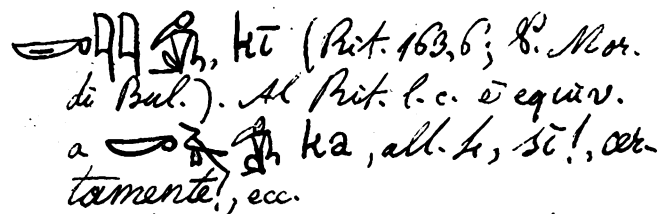 𓎡𓇌𓀁, kī (Rit. 163,6; P. Mor.
di Bul.). Al Rit. l. c. è equiv.
a 𓎡𓄿𓀁 ka, all. fe, sī!, cer-
tamente!, ecc.